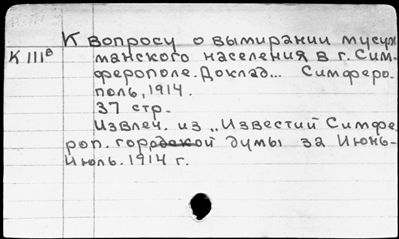 К вопросу о вымирании мусуль
К IIIв
манского населения в г. Сим-
ферополе. Доклад... Симферо.
поль, 1914.
37 стр.
Извлеч. из „Известий Симфе
роп. городской думы за Июнь-
Июль. 1914 г.